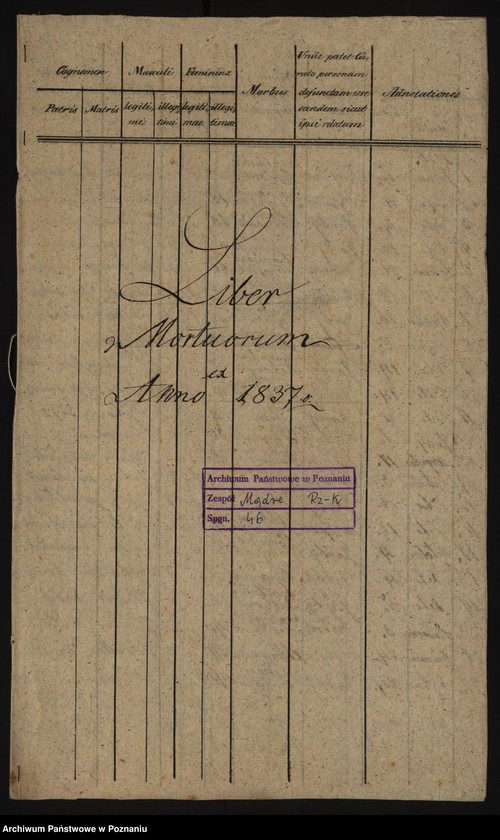 Cognomen Masculi Femininæ Morbus Unde patet Cu-
rato personam
defunctam esse
eandem sicut
ipsi relatum Adnotationes
Patris Matris legiti-
mi illegi-
timi legiti-
mae illegi-
timae
Liber
Mortuorum
ed
Anno 1837
Archiwum Państwowe w Poznaniu
Zespół Mądre Rz-K
Sygn. 46
Archiwum Państwowe w Poznaniu